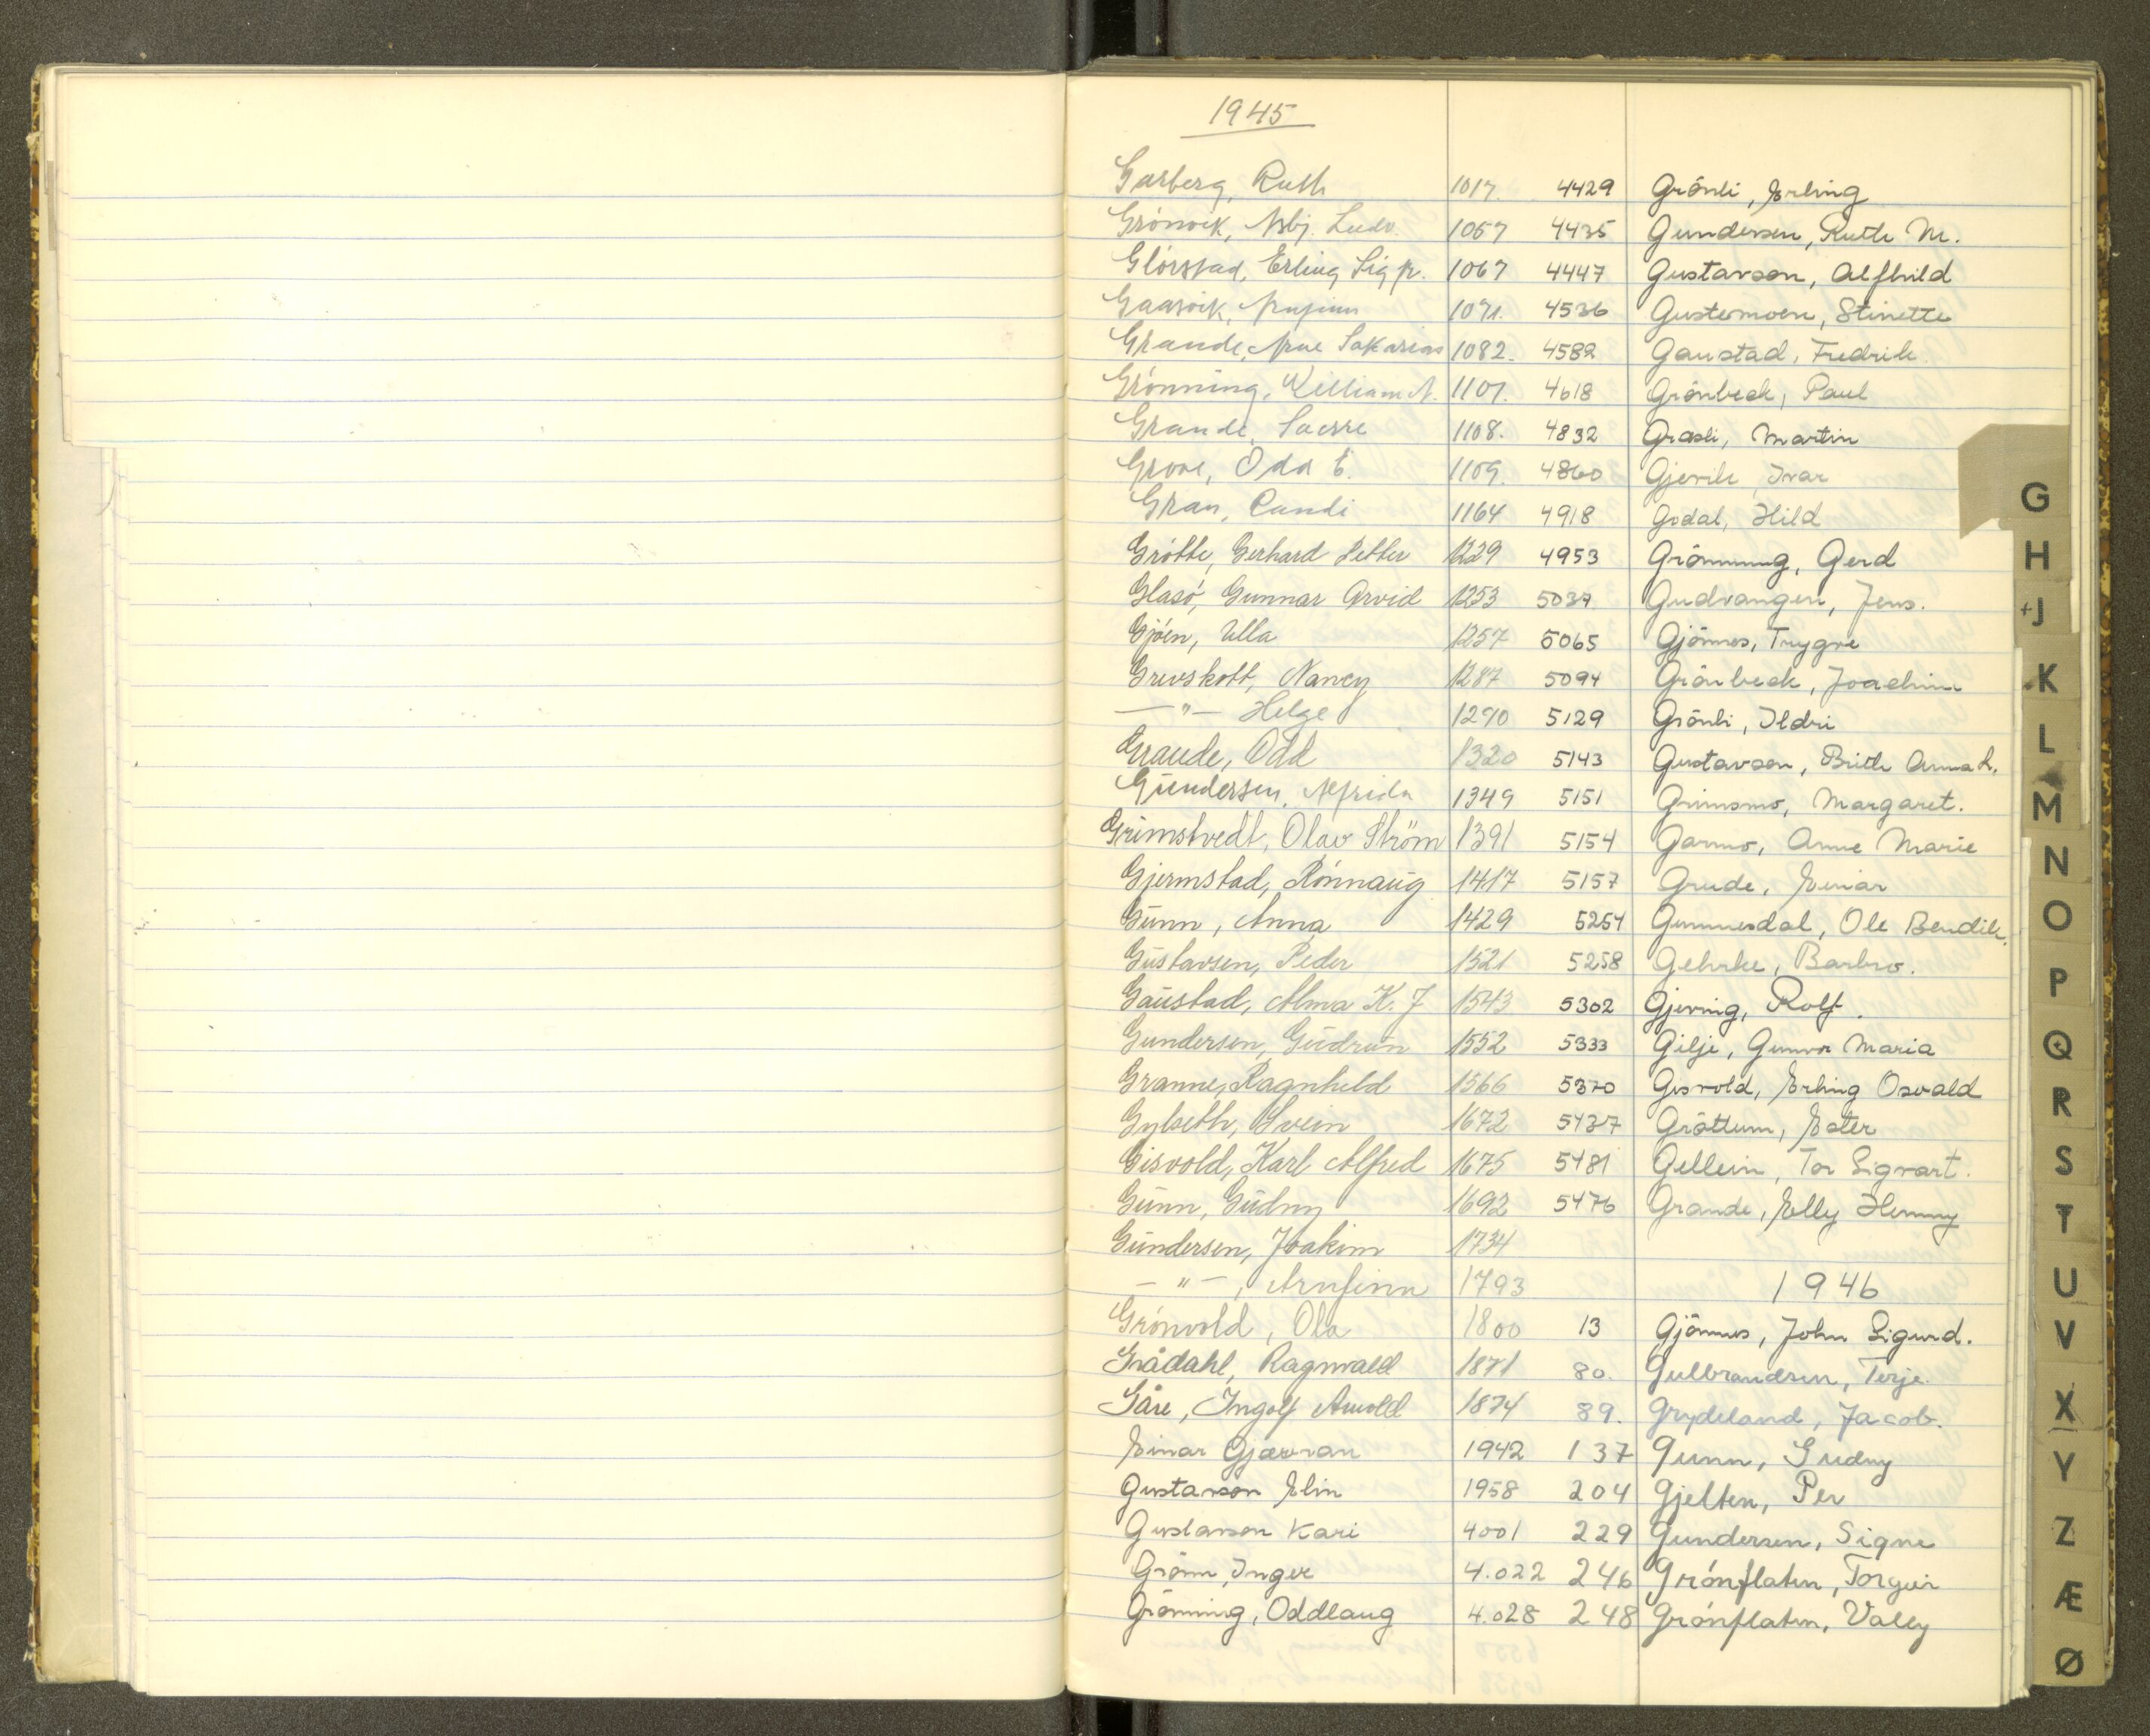 1945
Garberg, Ruth 1017. 4429 Grönli, Erling
Grónvik, Asbj. Ludv. 1057 4435 Gundersen, Ruth M.
Glórstad, Erling Sig 1067 4447 Gustavson, Alfhild
Gaasvik, Arnfinn 1071. 4536 Gustermoen, Stinette
Grande, Arne Sakarias 1082. 4582 Gaustad, Fredrik
Grónning, William A. 1107. 4618 Grönbeck, Paul
Grande, Sverre 1108. 4832 Grasli, Martin
Grove, Odd E. 1109. 4860 Gjevik, Ivar
Gran, Randi 1164 4918 Godal, Hild
Gròtte, Gerhard Petter 1229 4953 Grönning, Gerd
Glasó, Gunnar Arvid 1253 5037 Gudvangen, Jens.
Gjóen, Ulla 1257 5065 Gjönnes, Trygve
Grevskott, Nancy 1287 5094 Grönbeck, Joachim
—"— Helge 1290 5129 Grönli, Ildri
Grande, Odd 1320 5143 Gustavson, Brith Anna L.
Gundersen, Alfrida 1349 5151 Grimsmo, Margaret.
Grimstvedt, Olav Ström 1391 5154 Garmo, Anne Marie
Gjermstad, Rónnaug 1417 5157 Grude, Einar
Gunn, Anna 1429 5254 Gunnesdal, Ole Bendik.
Gustavsen, Peder 1521 5258 Gehrke, Barbro.
Gaustad, Alma K. J 1543 5302 Gjering, Rolf.
Gundersen, Gudrun 1552 5333 Gilje, Gunvor Maria
Granne, Ragnhild 1566 5370 Gisvold, Erling Osvald
Gylseth, Svein 1672 5437 Gröttum, Ester
Gisvold, Karl Alfred 1675 5481 Gellein, Tor Sigvart.
Gunn, Gudny 1692 5476 Grande, Elly Henny
Gundersen, Joakim 1734
—"—, Arnfinn 1793 1946
Grónvold, Ola 1800 13 Gjönnes, John Sigurd.
Grådahl, Ragnvald 1871 80. Gulbrandsen, Terje.
Gåre, Ingolf Arnold 1874 89. Grydeland, Jacob.
Einar Gjærvan 1942 137 Gunn, Gudny
Gustavson Elin 1958 204 Gjelten, Per
Gustavson Kari 4001 229 Gundersen, Signe
Grönn, Inger 4.022 246 Grónflaten, Torgeir
Grönning, Oddlaug 4.028 248 Grónflaten, Vally
G
H
+J
K
L
M
N
O
P
Q
R
S
T
U
V
X
Y
Z
Æ
Ø